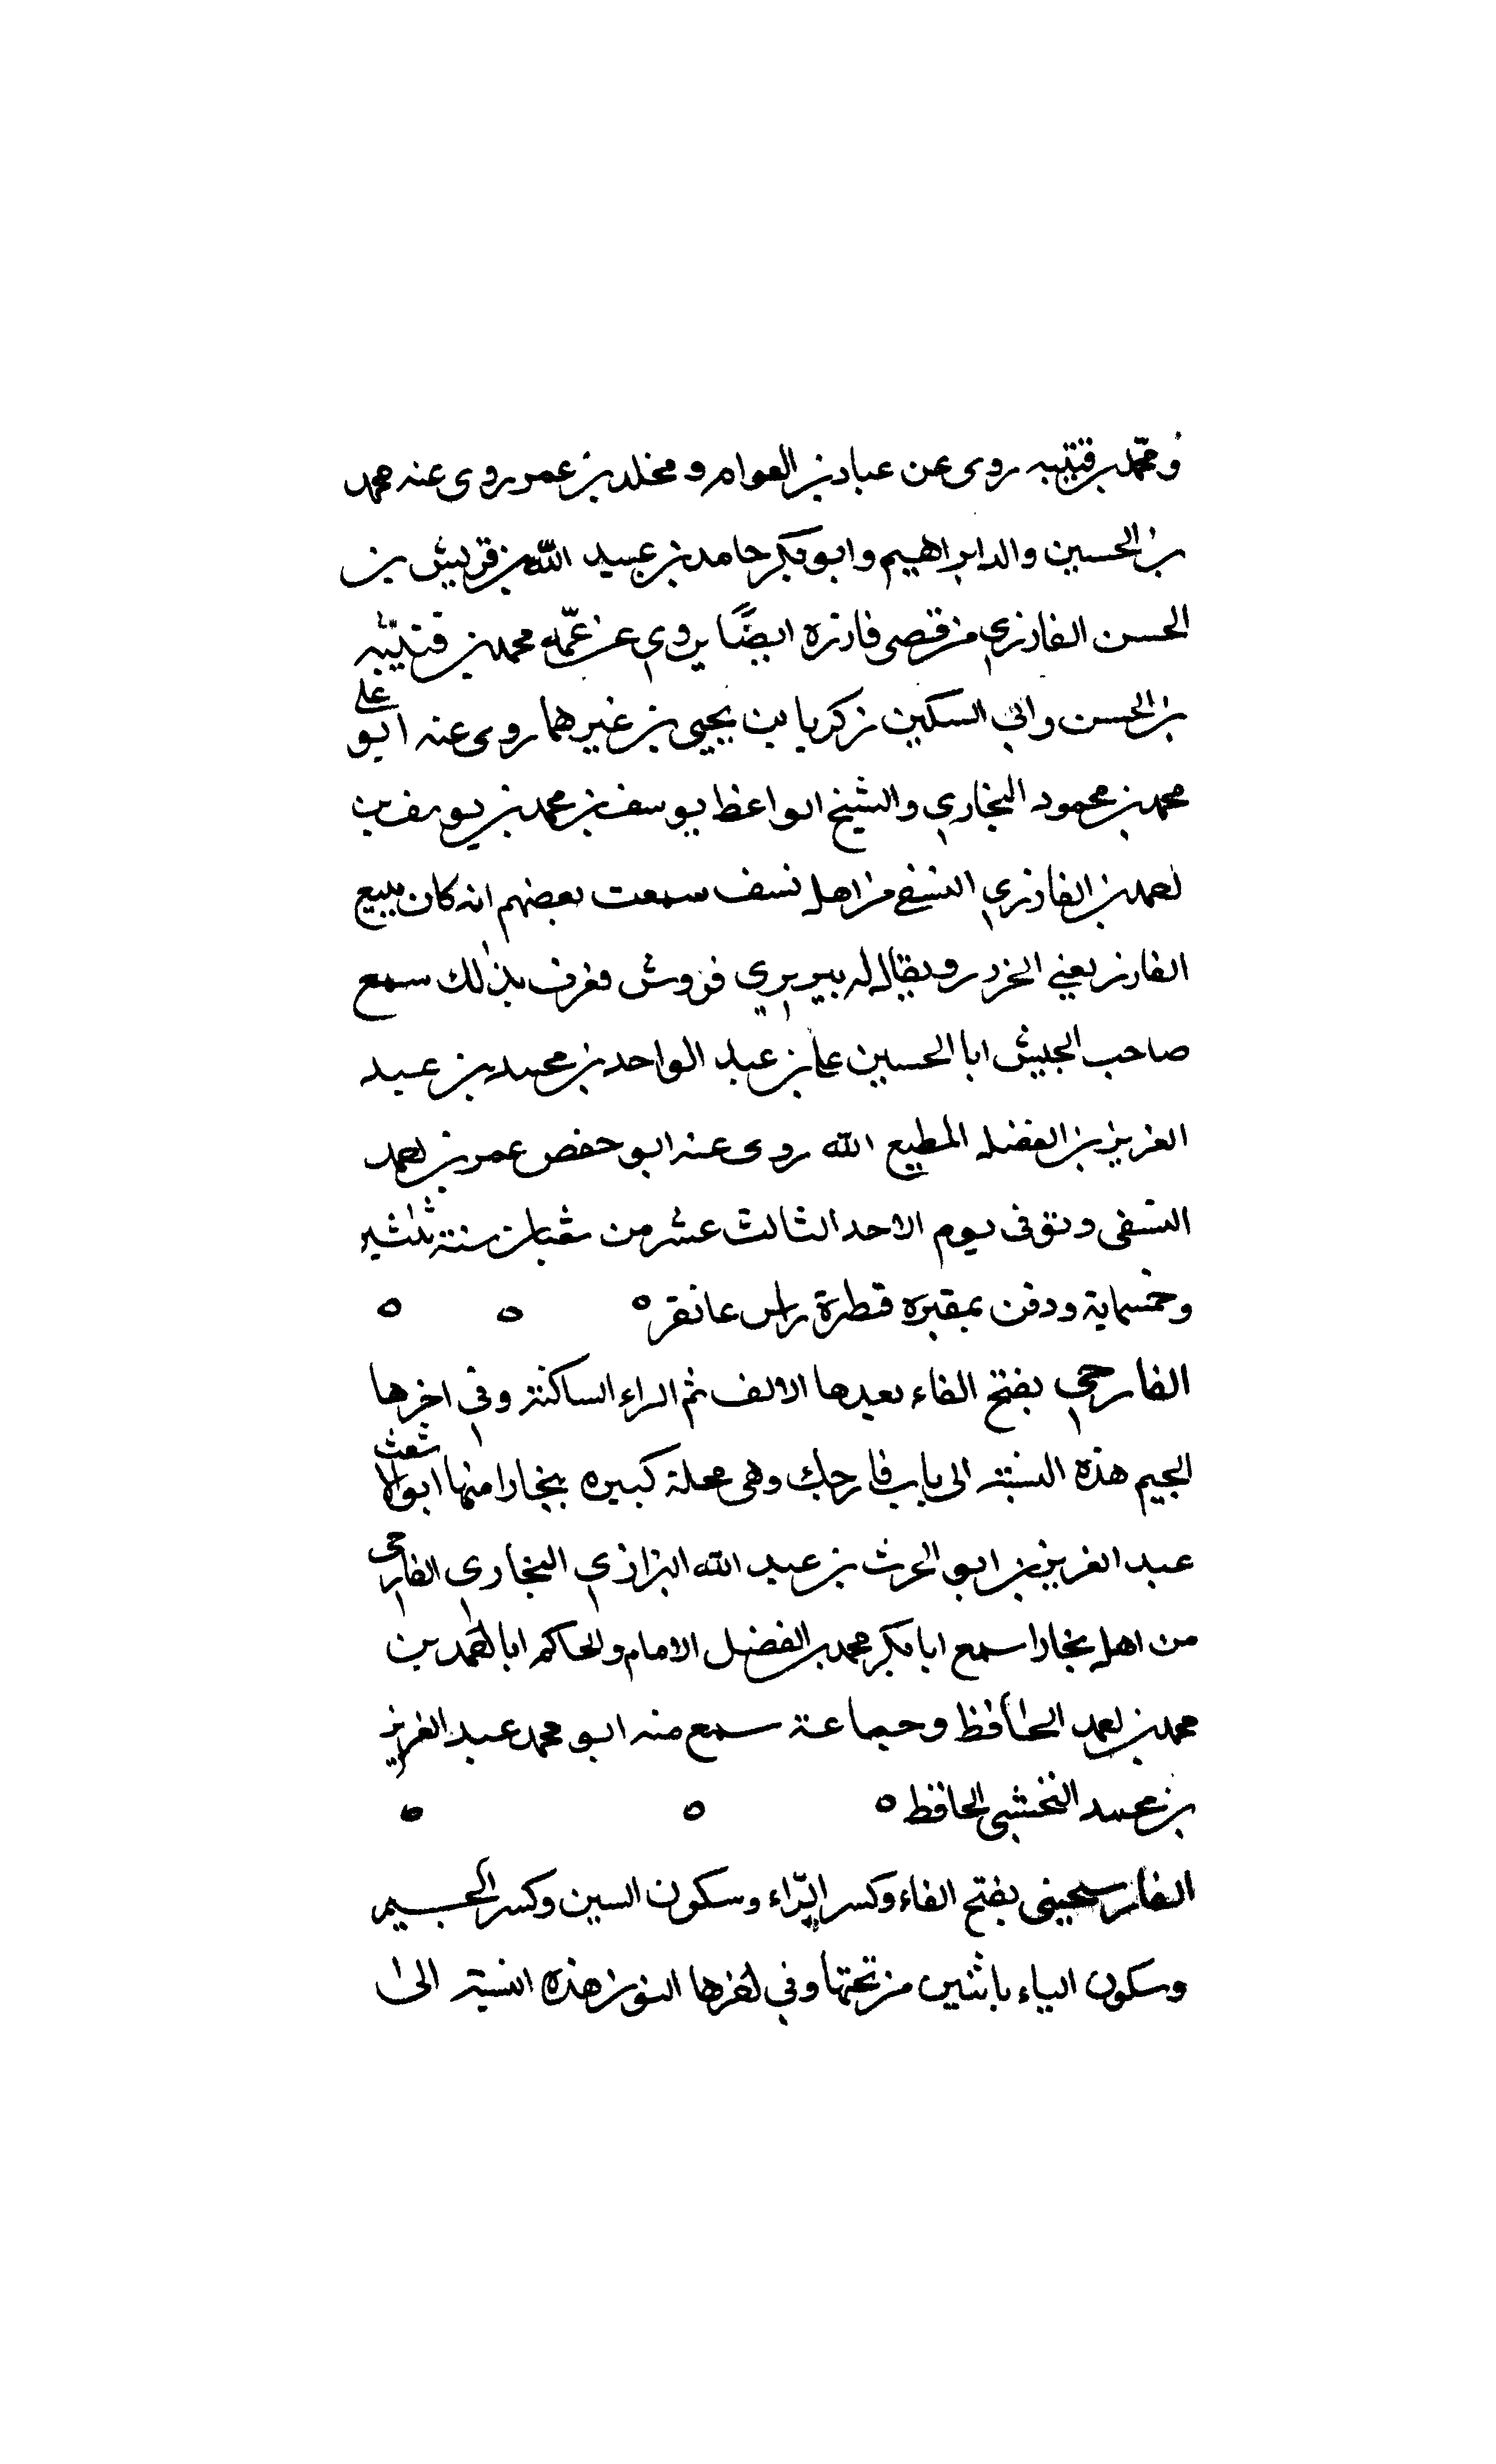 ومحمد بن قتيبه روى عن عباد بن العوام و مخلد بن عمر روى عنه محمد
بن الحسين والد ابراهيم وابو بكر حامد بن عبيد الله بن قريش بن
الحسن الفارزي من قصى فارزه ايضًا يروي عن عمّه محمد بن قتيبه
بن الحسن وابي السكين زكريا بن يحيى بن غيرهما روى عنه ابو على
محمد بن محمود البخاري والشيخ الواعظ يوسف بن محمد بن يوسف بن
احمد بن الفارزي النسفي من اهل نسف سمعت بعضهم انه كان يبيع
الفارز يعني الخرز ويقال له بيربري فروش فعرف بذلك سمع
صاحب الجيش ابا الحسين علي بن عبد الواحد بن محمد بن عبد
العزيز بن الفضل المطيع الله روى عنه ابو حفص عمر بن احمد
النسفى وتوفى يوم الاحد الثالث عشر من شعبان سنة ثلثين
وخمسماية ودفن بمقبره قطرة راس عانقر ه ه ه
الفارجي بفتح الفاء بعدها الالف ثم الراء الساكنة وفي اخرها
الجيم هذه النسبة الى باب فارجك وهى محلة كبيره ببخارا منها ابو الاشعث
عبد العزيز بن ابو الحرث بن عبد الله البزازي البخاري الفارجى
من اهل بخارا سمع ابا بكر محمد بن الفضل الامام والحاكم ابا احمد بن
محمد بن احمد الحافظ وجماعة سمع منه ابو محمد عبد العزيز
بن محمد النخشبي الحافظ ه ه ه
الفارسجيني بفتح الفاء وكسر الرّاء وسكون السين وكسر الجيم
وسكون الياء باثنين من تحتها وفي اخرها النون هذه النسبة الى